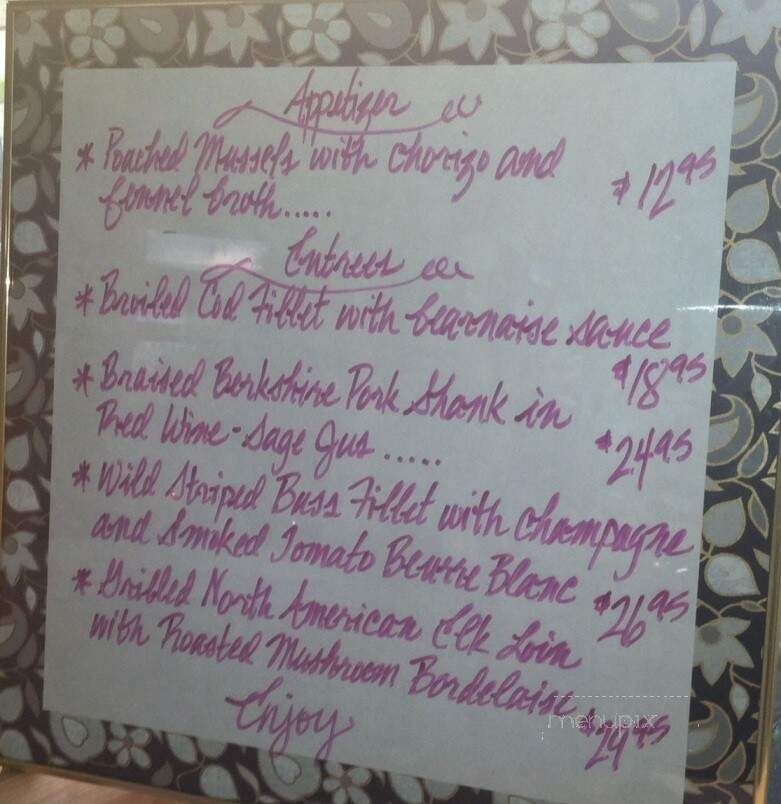 Appetizer
* Poached Mussels with chorizo and
fennel broth..... $12.95
Entrees
* Broiled Cod Fillet with bearnaise sauce
$18.95
* Braised Berkshire Pork Shank in
Red Wine-Sage Jus ..... $24.95
* Wild Striped Bass Fillet with Champagne
and Smoked Tomato Beurre Blanc $26.95
* Grilled North American Elk Loin
with Roasted Mushroom Bordelaise
$29.95
Enjoy
menupix